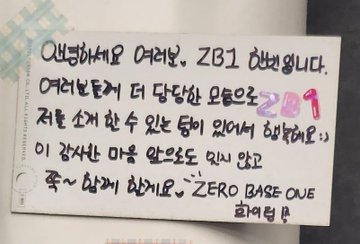 안녕하세요 여러분. ZB1 한빈입니다.
여러분들께 더 당당한 모습으로 ZB1
저를 소개 할 수 있는 팀이 있어서 행복해요:)
이 감사한 마음 앞으로도 잊지 않고
쭉~ 함께 할게요. ZERO BASE ONE
화이팅!!